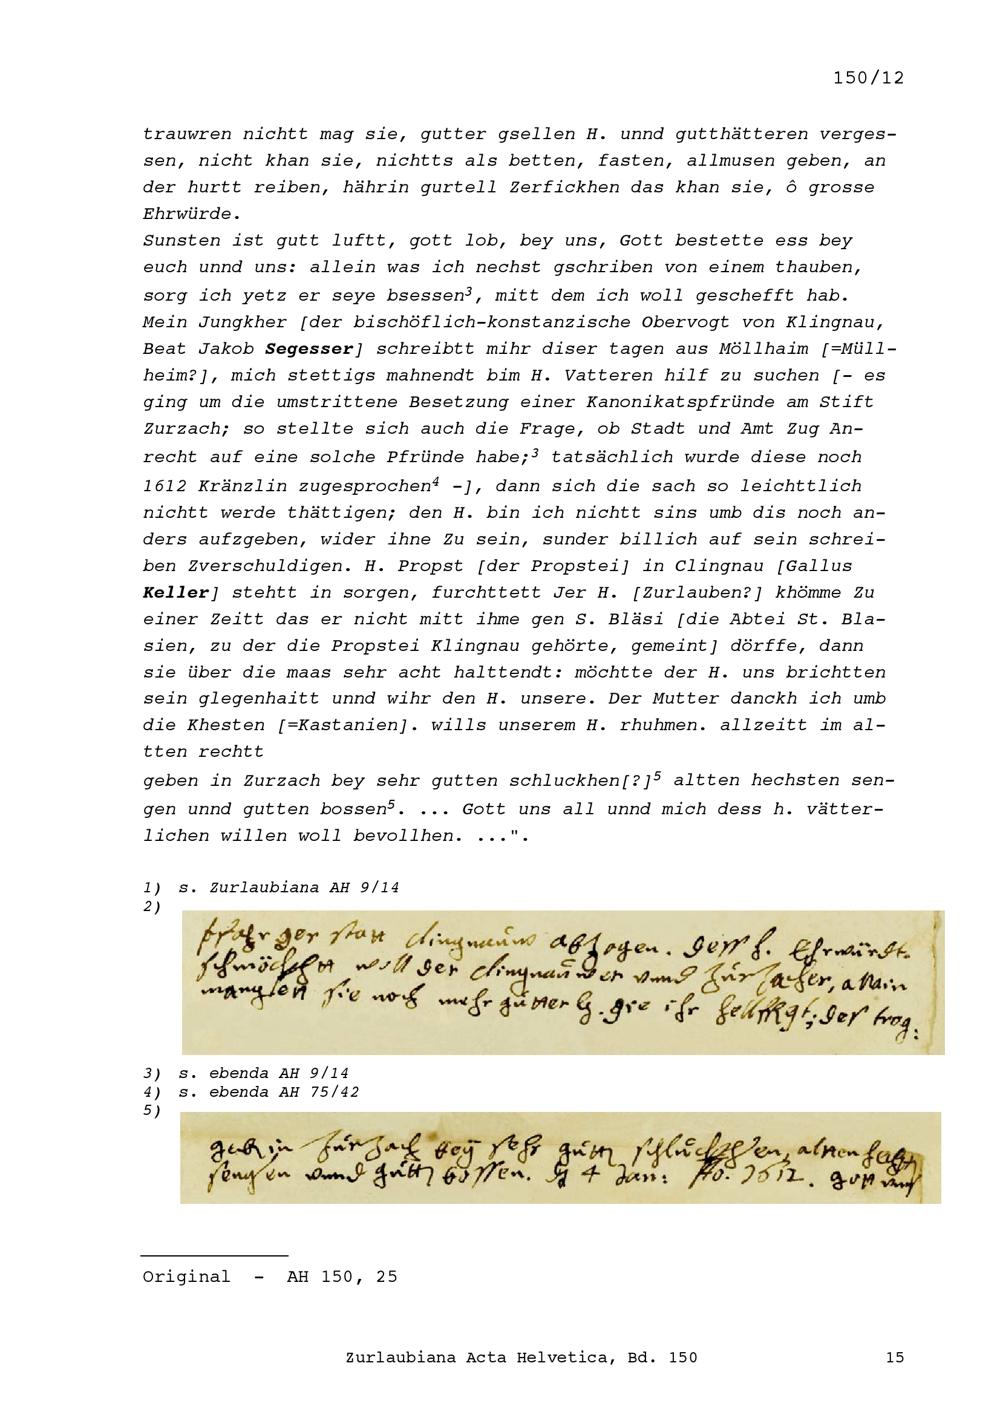 150/12
trauwren nichtt mag sie, gutter gsellen H. unnd gutthätteren verges-
sen, nicht khan sie, nichtts als betten, fasten, allmusen geben, an
der hurtt reiben, hährin gurtell Zerfickhen das khan sie, ô grosse
Ehrwürde.
Sunsten ist gutt luftt, gott lob, bey uns, Gott bestette ess bey
euch unnd uns: allein was ich nechst gschriben von einem thauben,
sorg ich yetz er seye bsessen3, mitt dem ich woll geschefft hab.
Mein Jungkher [der bischöflich-konstanzische Obervogt von Klingnau,
Beat Jakob Segesser] schreibtt mihr diser tagen aus Möllhaim [=Müll-
heim?], mich stettigs mahnendt bim H. Vatteren hilf zu suchen [- es
ging um die umstrittene Besetzung einer Kanonikatspfründe am Stift
Zurzach; so stellte sich auch die Frage, ob Stadt und Amt Zug An-
recht auf eine solche Pfründe habe;3 tatsächlich wurde diese noch
1612 Kränzlin zugesprochen4 -], dann sich die sach so leichttlich
nichtt werde thättigen; den H. bin ich nichtt sins umb dis noch an-
ders aufzgeben, wider ihne Zu sein, sunder billich auf sein schrei-
ben Zverschuldigen. H. Propst [der Propstei] in Clingnau [Gallus
Keller] stehtt in sorgen, furchttett Jer H. [Zurlauben?] khömme Zu
einer Zeitt das er nicht mitt ihme gen S. Bläsi [die Abtei St. Bla-
sien, zu der die Propstei Klingnau gehörte, gemeint] dörffe, dann
sie über die maas sehr acht halttendt: möchtte der H. uns brichtten
sein glegenhaitt unnd wihr den H. unsere. Der Mutter danckh ich umb
die Khesten [=Kastanien]. wills unserem H. rhuhmen. allzeitt im al-
tten rechtt
geben in Zurzach bey sehr gutten schluckhen[?]5 altten hechsten sen-
gen unnd gutten bossen5. ... Gott uns all unnd mich dess h. vätter-
lichen willen woll bevollhen. ...".
1) s. Zurlaubiana AH 9/14
2)
der statt clingnauw abzogen. dess h. Ehrwürdt.
woll der clingnauwer unnd Zurzacher, allein
manglen sie noch mehr gutter
3) s. ebenda AH 9/14
4) s. ebenda AH 75/42
5)
geben in Zurzach bey sehr gutten schluckhen, altten
sengen unnd gutten bossen. 4 Jan: Ao. 1612. gott uns
Original - AH 150, 25
Zurlaubiana Acta Helvetica, Bd. 150 15